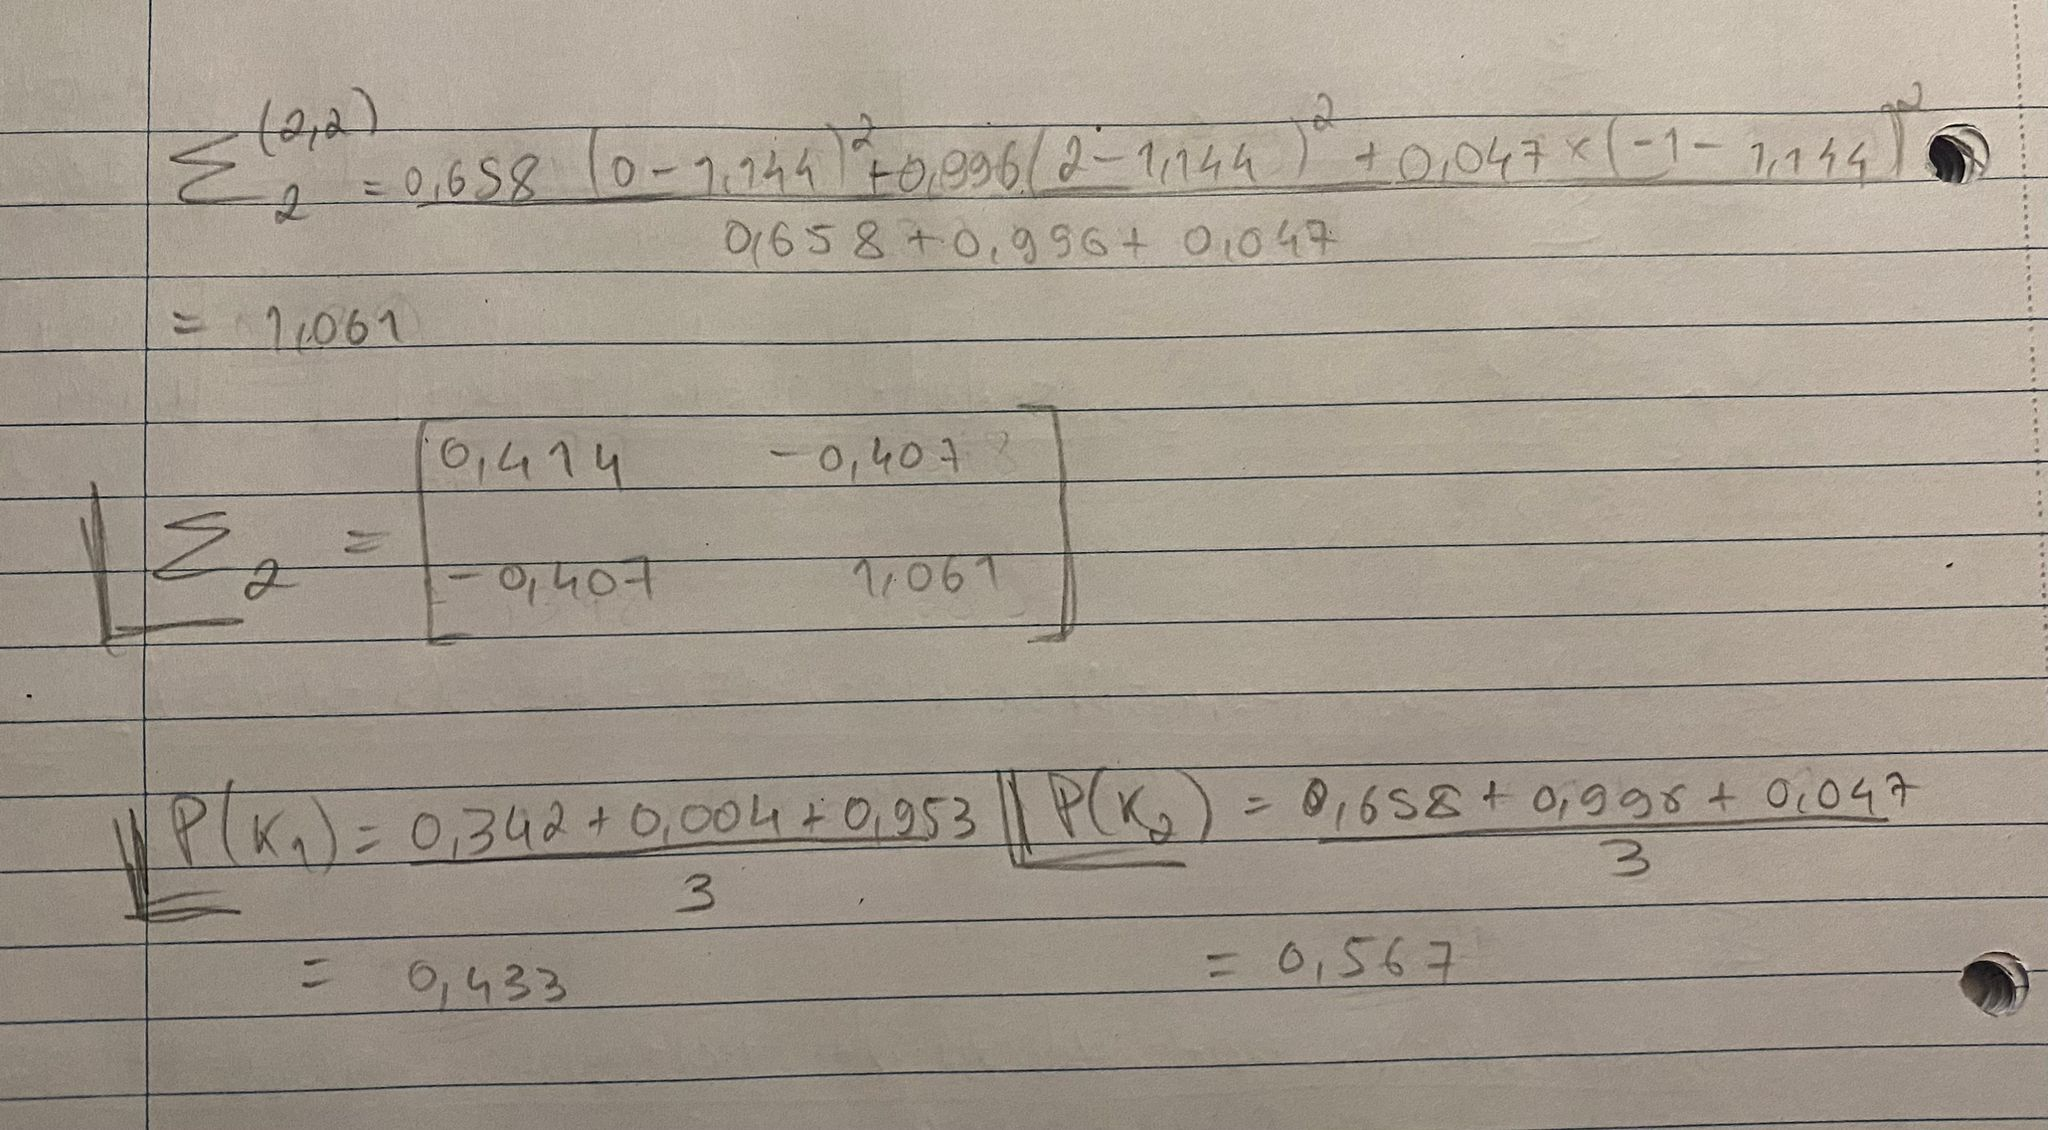 Σ₂^(2,2) = (0,658 (0 - 1,144)² + 0,996 (2 - 1,144)² + 0,047 × (-1 - 1,144)²) / (0,658 + 0,996 + 0,047)
= 1,061
Σ₂ = [0,414 -0,407
-0,407 1,061]
P(K₁) = (0,342 + 0,004 + 0,953) / 3 P(K₂) = (0,658 + 0,996 + 0,047) / 3
= 0,433 = 0,567